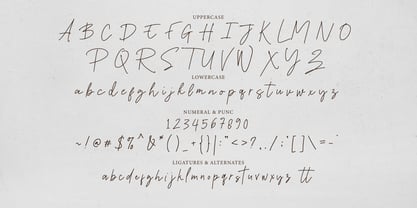 UPPERCASE
A B C D E F G H I J K L M N O
P Q R S T U V W X Y Z
LOWERCASE
a b c d e f g h i j k l m n o p q r s t u v w x y z
NUMERAL & PUNC
1 2 3 4 5 6 7 8 9 0
~ ! @ # $ % ^ & * ( ) _ + { } | : " < > ? , . / ; ' [ ] \ = - `
LIGATURES & ALTERNATES
a b c d e f g h i j k l m n o p q r s t u v w x y z tt